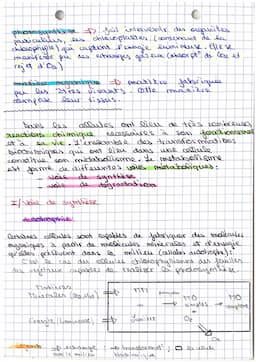 photosynthèse => fait intervenir des organites
particuliers, les chloroplastes (contenant de la
chlorophylle) qui captent l'énergie lumineuse. Elle se
manifeste par des échanges gazeux (absorpt° de CO2 et
rejet d'O2)
matière organique => matière fabriquée
par les êtres vivants. Cette matière
compose leur tissus.
Dans les cellules ont lieu de très nombreuses
réactions chimiques nécessaires à son fonctionnement
et à sa vie. L'ensemble des transformations
biochimiques qui ont lieu dans une cellule
constitue son métabolisme. Le métabolisme
est formé de différentes voies métaboliques:
- voie de synthèse
- voie de dégradation
I/ Voie de synthèse
Certaines cellules sont capables de fabriquer des molécules
organiques à partir de molécules minérales et d'énergie
qu'elles prélèvent dans le milieu (cellules autotrophes).
C'est le cas des cellules chlorophylliennes des feuilles
des végétaux capables de réaliser la photosynthèse.
Matières
Minérales (CO2, H2O) => MM -> MO simples -> MO
Energie (Lumineuse) => Lumière
O2
O2